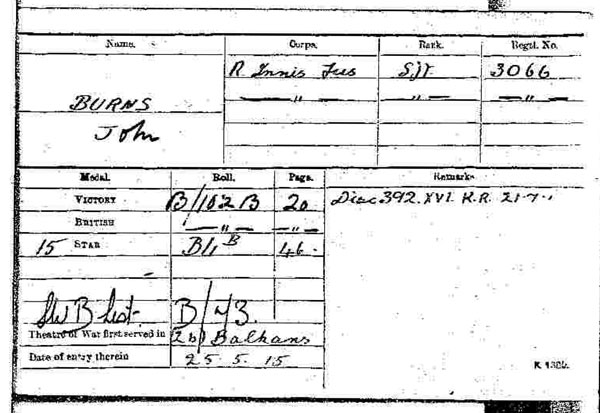 Name. Corps. Rank. Regtl. No.
R. Innis Fus Sjt 3066
— „ — — „ — — „ —
BURNS
John
Medal. Roll. Page. Remarks
VICTORY B/102 B 20 Disc 392. XVI. K.R. 21.7.
BRITISH — „ — — „ —
15 STAR B/1 B 46.
SWB List B/43.
Theatre of War first served in (2b) Balkans
Date of entry therein 25. 5. 15
K 1380.